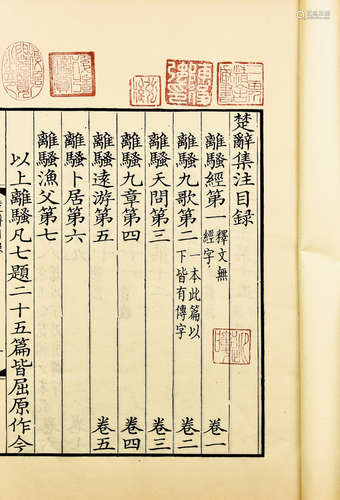 楚辭集注目録
離騷經第一 釋文無經字 卷一
離騷九歌第二 一本此篇以下皆有傳字 卷二
離騷天問第三 卷三
離騷九章第四 卷四
離騷遠游第五 卷五
離騷卜居第六
離騷漁父第七
以上離騷凡七題二十五篇皆屈原作今